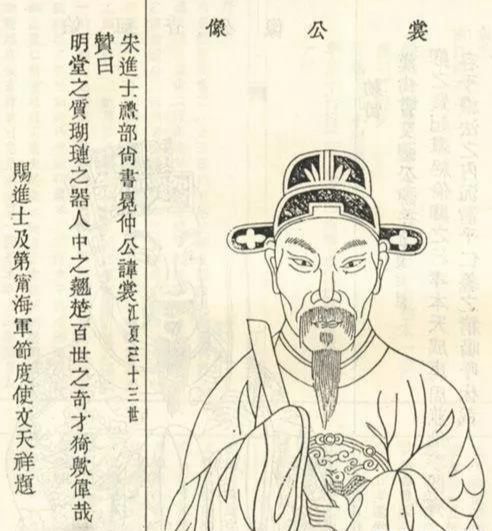 裳公像
宋進士禮部尙書冕仲公諱裳江夏三十三世
贊曰
明堂之質瑚璉之器人中之翹楚百世之奇才猗歟偉哉
賜進士及第甯海軍節度使文天祥題